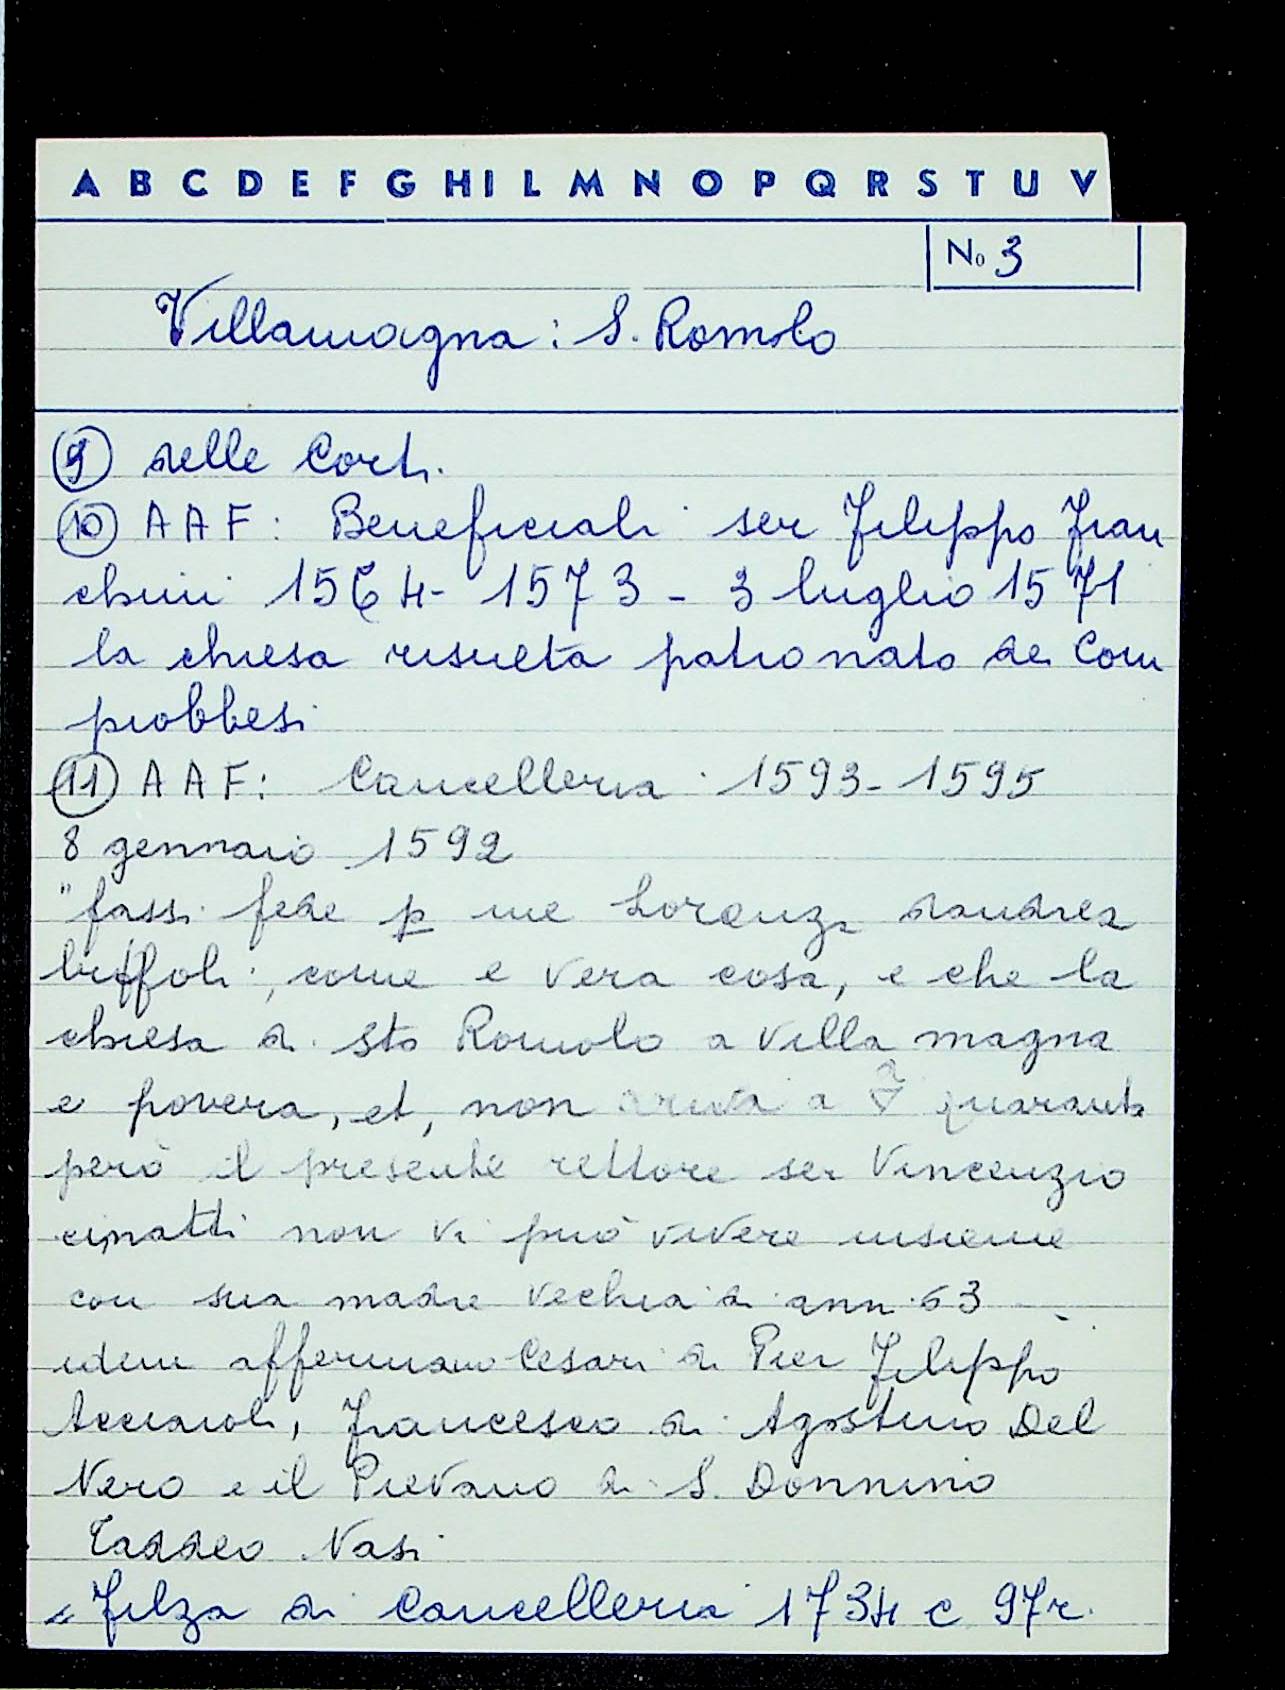 A B C D E F G H I L M N O P Q R S T U V
No 3
Villamagna: S. Romolo
9 delle Corti.
10 AAF: Beneficiali ser Filippo Fran
chini 1564-1573 - 3 luglio 1571
la chiesa risulta patronato dei Com
piobbesi
11 AAF: Cancelleria 1593-1595
8 gennaio 1592
"fassi fede p me Lorenzo dandrea
biffoli, come e vera cosa, e che la
chiesa di sto Romolo a villa magna
e povera, et, non ariva a quaranta
però il presente rettore ser Vincenzio
cinatti non vi può vivere insieme
con sua madre vechia di anni 63
idem affermano Cesari di Pier Filippo
Acciaioli, Francesco di Agostino Del
Nero e il Pievano di S. Donnino
Taddeo Nasi
" Filza di Cancelleria 1734 c 97r.